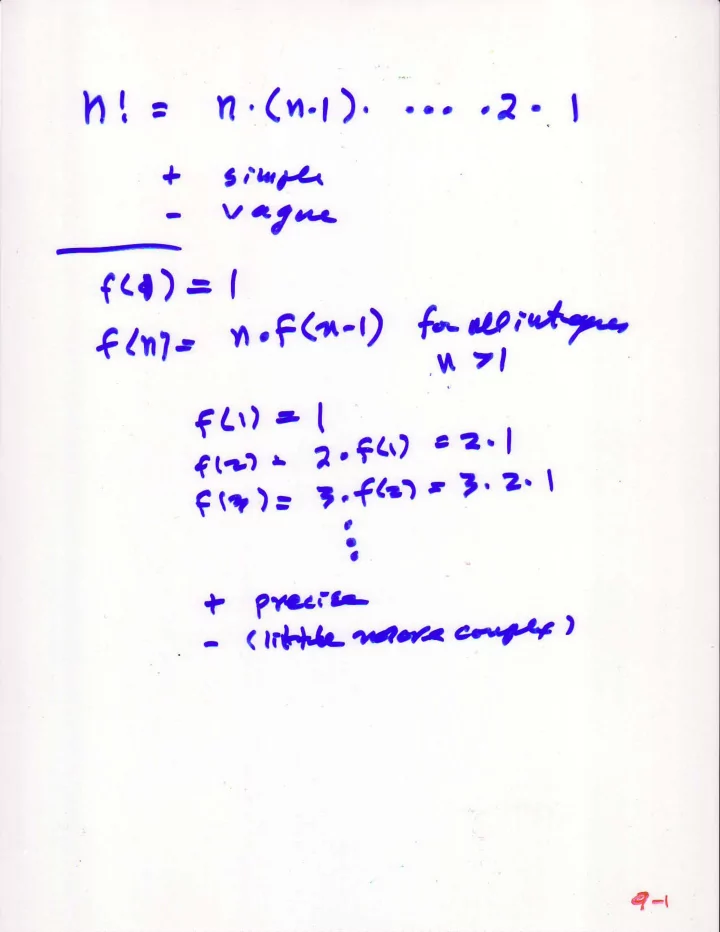 n! = n·(n-1)· ... ·2· 1
+ simple
- vague
f(1) = 1
f(n) = n·f(n-1) for all integers
n >1
f(1) = 1
f(2) = 2·f(1) = 2·1
f(3) = 3·f(2) = 3·2·1
⋮
+ precise
- (little more complex)
9-1